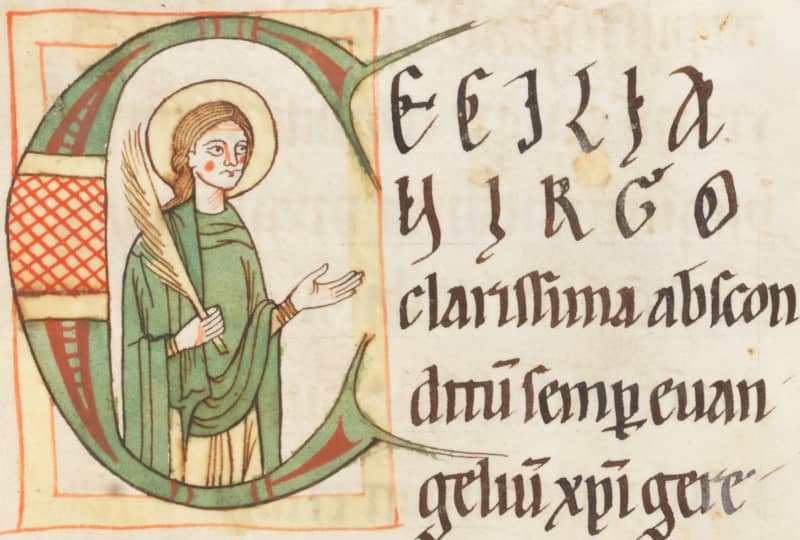 CECILIA
VIRGO
clariſſima abſcon
ditū ſemꝑ euan
geliū xp̄i gere